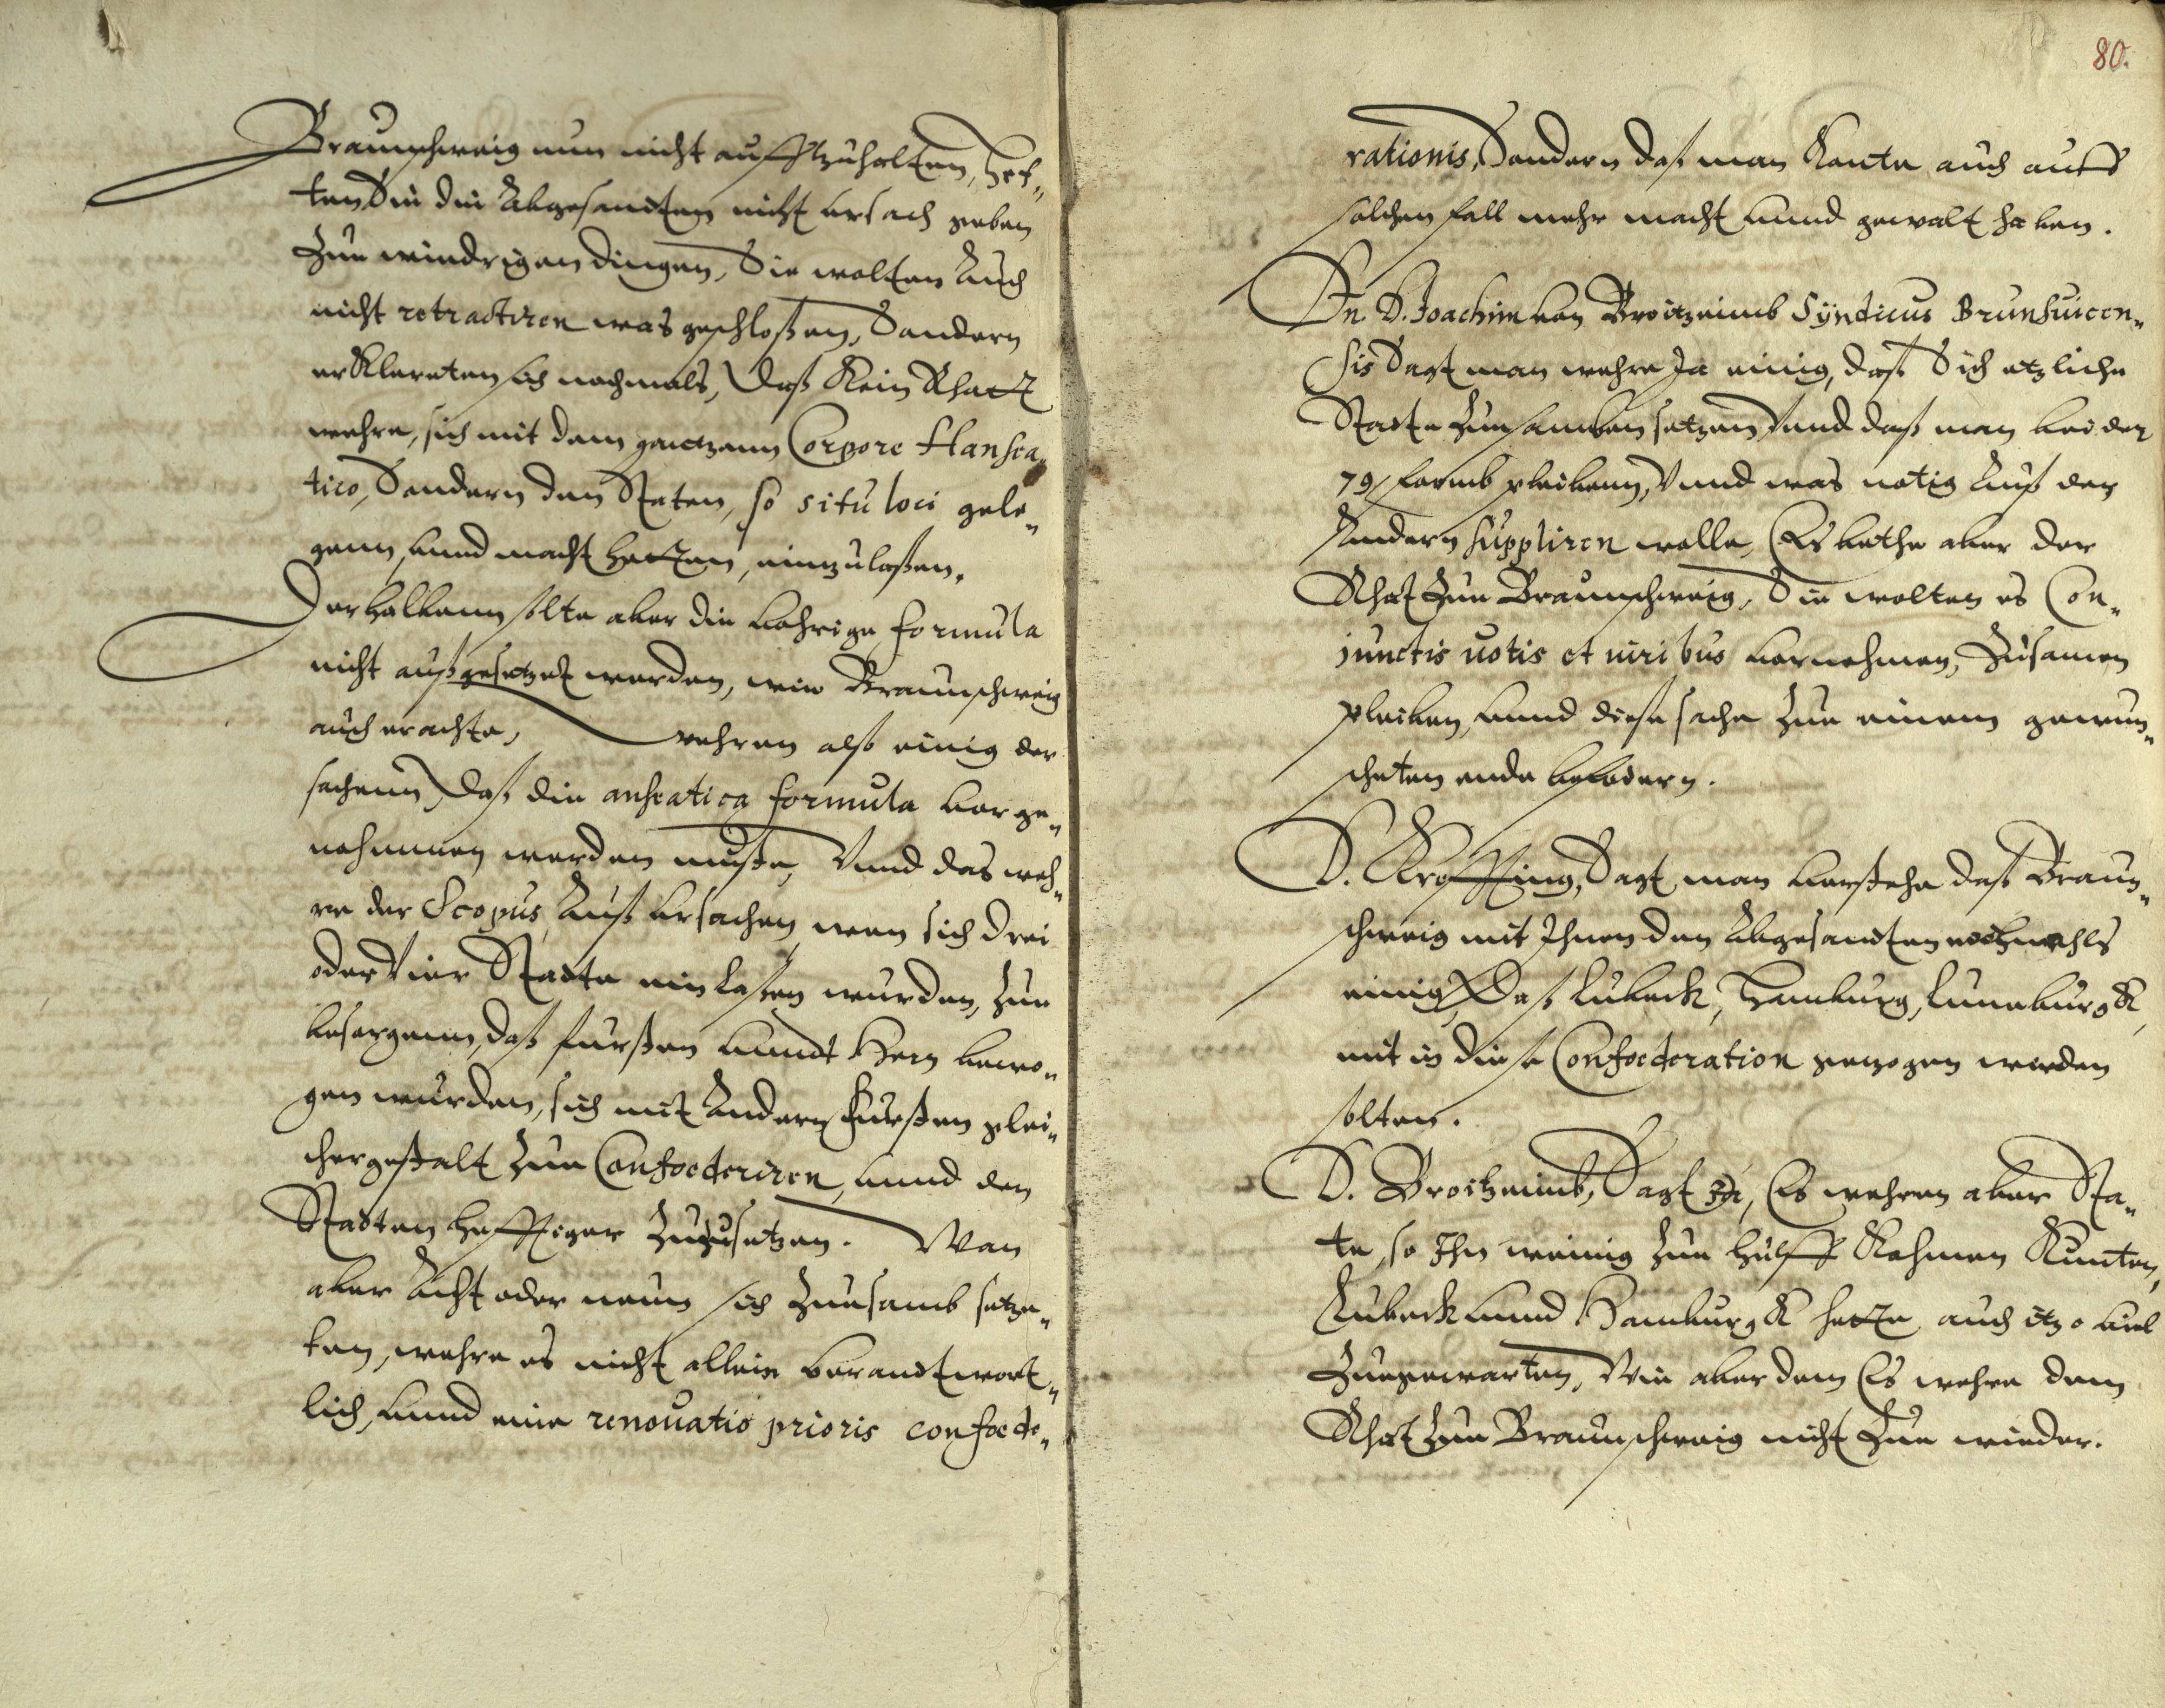 Braunschweig nun nicht auffzuhalten, het„
ten Sie die Abgesandten nicht ursach geben
Zue wiedrigen dingen, Sie wolten Auch
nicht retractiren was geschloßen, Sondern
erklereten sich nochmals, Daß Kein Rhatt
wehre, sich mit dem gantzenn Corpore Hansea„
tico, Sondern den Steten, so situ loci gele„
genn, unnd macht hetten, einzulaßen.
Derhalbenn solte aber die vohrige formula
nicht außgesetzet werden, wie Braunschweig
auch erachte, wehren also einig der
sachenn, Daß die anseatica formula vorge„
nohmmen werden muste, Vnnd das weh„
re der Scopus, Auß Ursachen, wen sich drei
oder Vier Stadte einlaßen wurden, Zue
besorgenn, daß fursten unndt Hern bewo„
gen wurden, sich mit Andern fursten glei„
chergestalt Zue Confoederiren, unnd den
Stadten hefftiger Zuzusetzen. Wan
aber Acht oder neun sich Zuesamb setze„
ten, wehre es nicht allein verandtwort„
lich, unnd eine renouatio prioris confoede„
80.
rationis, Sondern daß man Konte auch auff
solchen fall mehr macht unnd gewalt haben.
Dn. D. Joachim von Broitzeimb Syndicus Brunsuicen„
sis Sagt man wehre Ja einig, daß Sich etzliche
Stadte Zuesammen setzen Vnnd daß man bei der
79/ formb pleibenn, Vnnd was notig Auß der
Andern suppliren wolle, Es bethe aber der
Rhat Zue Braunschweig, Sie wolten es Con„
junctis uotis et uiribus vornehmen, Zusamen
pleiben, unnd diese sache Zue einem gewun„
scheten ende befodern.
D. Kroffting, Sagt man verstehe daß Braun„
schweig mit Ihnen den Abgesandten nochmahls
einig, Daß Lubeck, Hamburg, Luneburgk,
mit in diese Confoederation gezogen werden
solten.
D. Broitzeimb, Sagt Ja, Es wehren aber Sta„
te, so Ihn weinig Zue hulff Kohmen Kunten,
Lubeck unnd Hamburgk hette auch itzo viel
Zuegewarten, Wie aber dem Es wehre dem
Rhat Zue Braunschweig nicht Zue wieder.